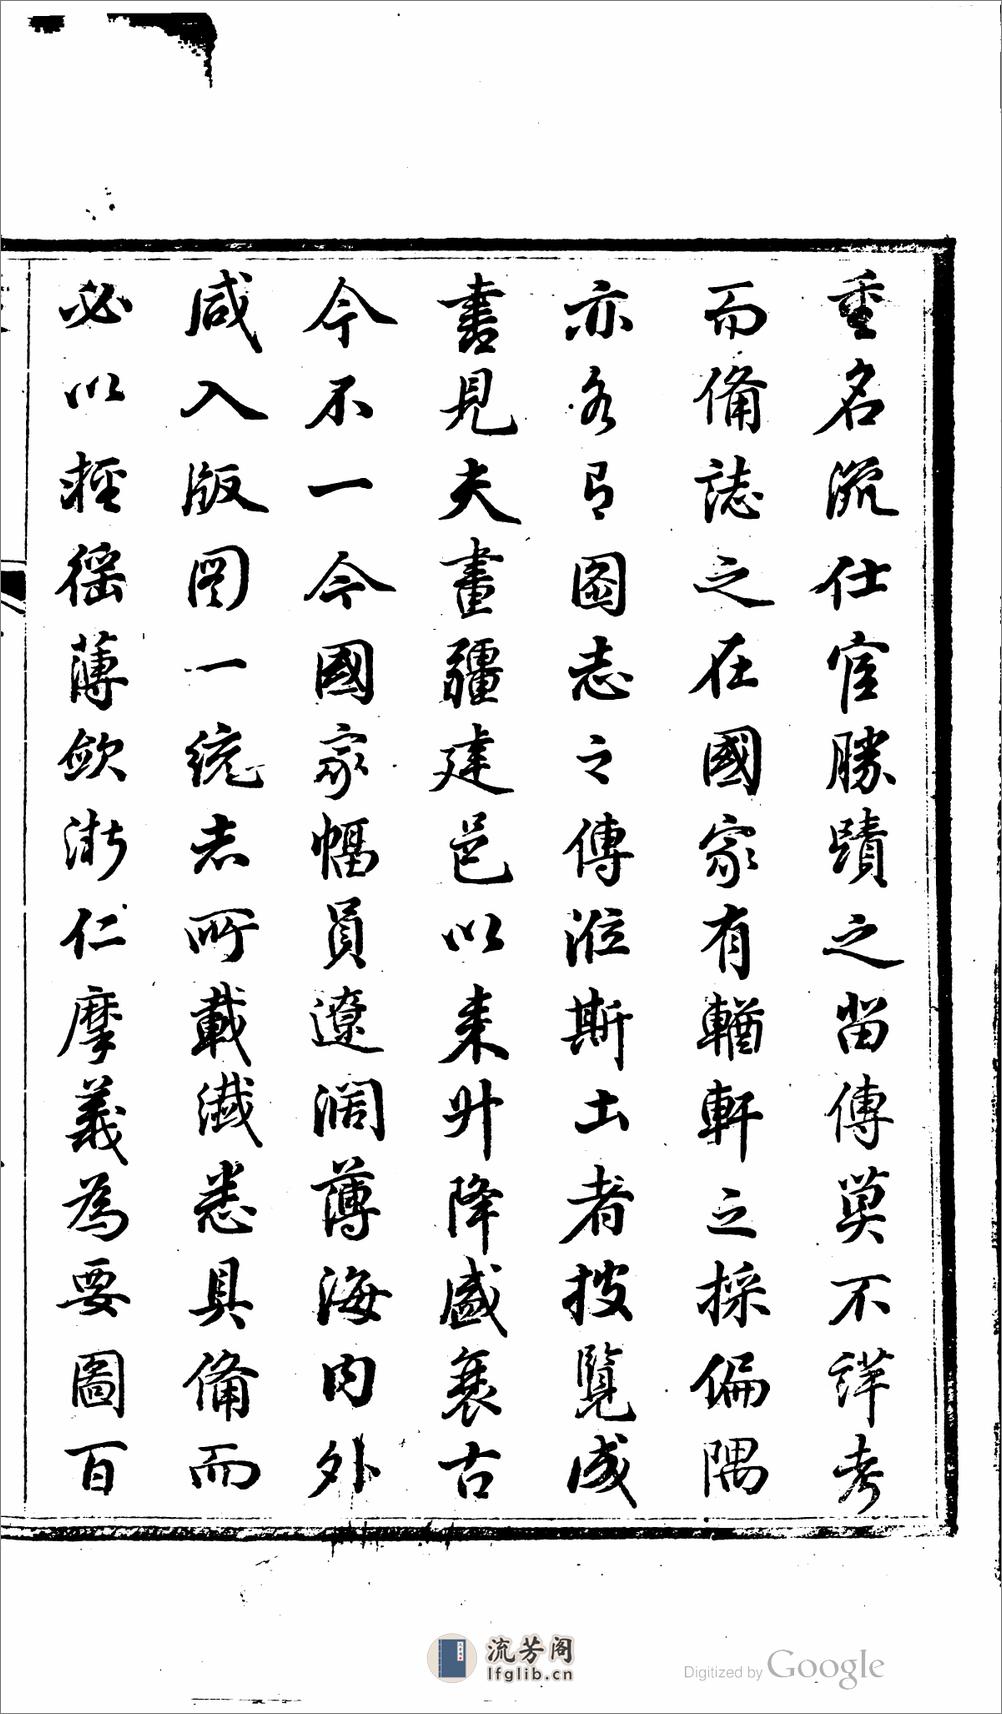 重名流仕宦勝蹟之留傳莫不詳考
而備誌之在國家有輶軒之採偏隅
亦各有圖志之傳涖斯土者披覽成
書見夫畫疆建邑以來升降盛衰古
今不一今國家幅員遼濶薄海內外
咸入版圖一統志所載纖悉具備而
必以輕徭薄斂漸仁摩義為要圖百
流芳阁
lfglib.cn
Digitized by Google